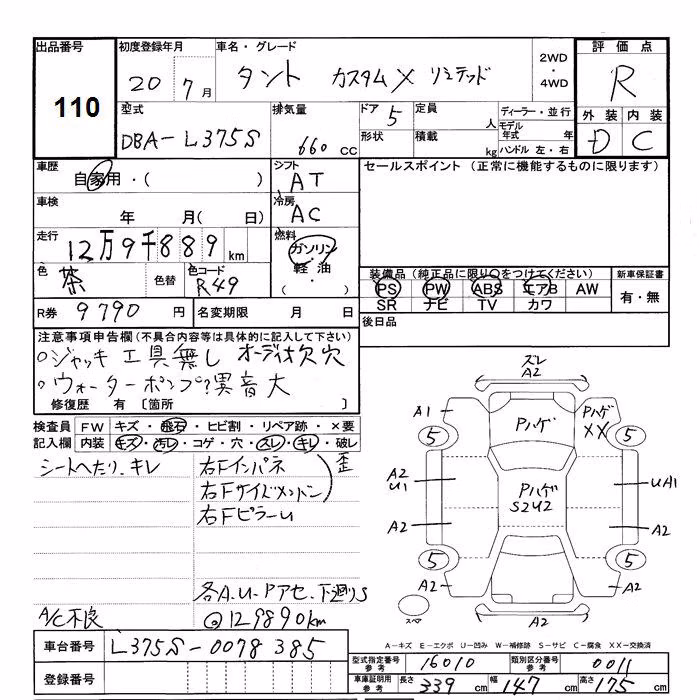 出品番号
110
初度登録年月
20 7月
車名・グレード
タント カスタムX リミテッド
2WD
・
4WD
評価点
R
外装 内装
D C
型式
DBA-L375S
排気量
660 cc
ドア 5
形状
定員 人
積載 kg
ディーラー・並行
モデル年式 年
ハンドル 左・右
車歴
自家用・( )
シフト
AT
セールスポイント (正常に機能するものに限ります)
車検
年 月( 日)
冷房
AC
走行
12万9千889 km
燃料
ガソリン
・
軽油
・( )
色
茶
色替
色コード
R49
装備品(純正品に限り○をつけてください)
PS PW ABS エアB AW
SR ナビ TV カワ
新車保証書
有・無
R券 9790 円
名変期限 月 日
後日品
注意事項申告欄(不具合内容等は具体的に記入して下さい)
○ジャッキ 工具無し オーディオ欠穴
○ウォーターポンプ?異音大
修復歴 有〔箇所 〕
検査員記入欄
FW キズ・飛石・ヒビ割・リペア跡・×要
内装 キズ・汚レ・コゲ・穴・スレ・キレ・破レ
シートへたり、キレ
右Fインパネ
右Fサイドメンバー
歪
右FピラーU
各A.U-Pアセ、下廻りS
A/C不良
@129890km
車台番号 L375S-0078385
登録番号
ズレ
A2
A1
Pハゲ
Pハゲ
XX
5
5
A2
U1
Pハゲ
S2U2
UA1
A2
A2
5
5
A2
A2
A2
スペア
A-キズ E-エクボ U-凹み W-補修跡 S-サビ C-腐食 XX-交換済
型式指定番号
参考
16010
類別区分番号
参考
0011
車庫証明用
参考
長さ 339 cm 幅 147 cm 高さ 175 cm